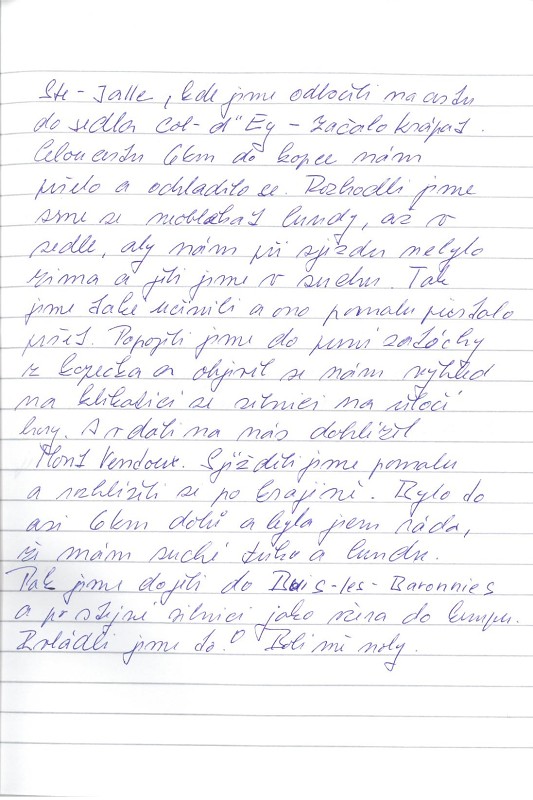 Ste-Jalle, kde jsme odbočili na cestu
do sedla Col-d"Ey - začalo krápat.
Celou cestu 6km do kopce nám
pršelo a ochladilo se. Rozhodli jsme
sme se neoblékat bundy, až v
sedle, aby nám při sjezdu nebylo
zima a jeli jsme v suchu. Tak
jsme také učinili a ono pomalu přestalo
pršet. Popojeli jsme do první zatáčky
z kopečka a objevil se nám výhled
na klikatící se silnici na úbočí
hory. A v dáli na nás dohlížel
Mont Ventoux. Sjížděli jsme pomalu
a rozhlíželi se po krajině. Bylo to
asi 6km dolů a byla jsem ráda,
že mám suché triko a bundu.
Tak jsme dojeli do Buis-les-Baronnies
a po stejné silnici jako včera do kempu.
Zvládli jsme to! Bolí mě nohy.